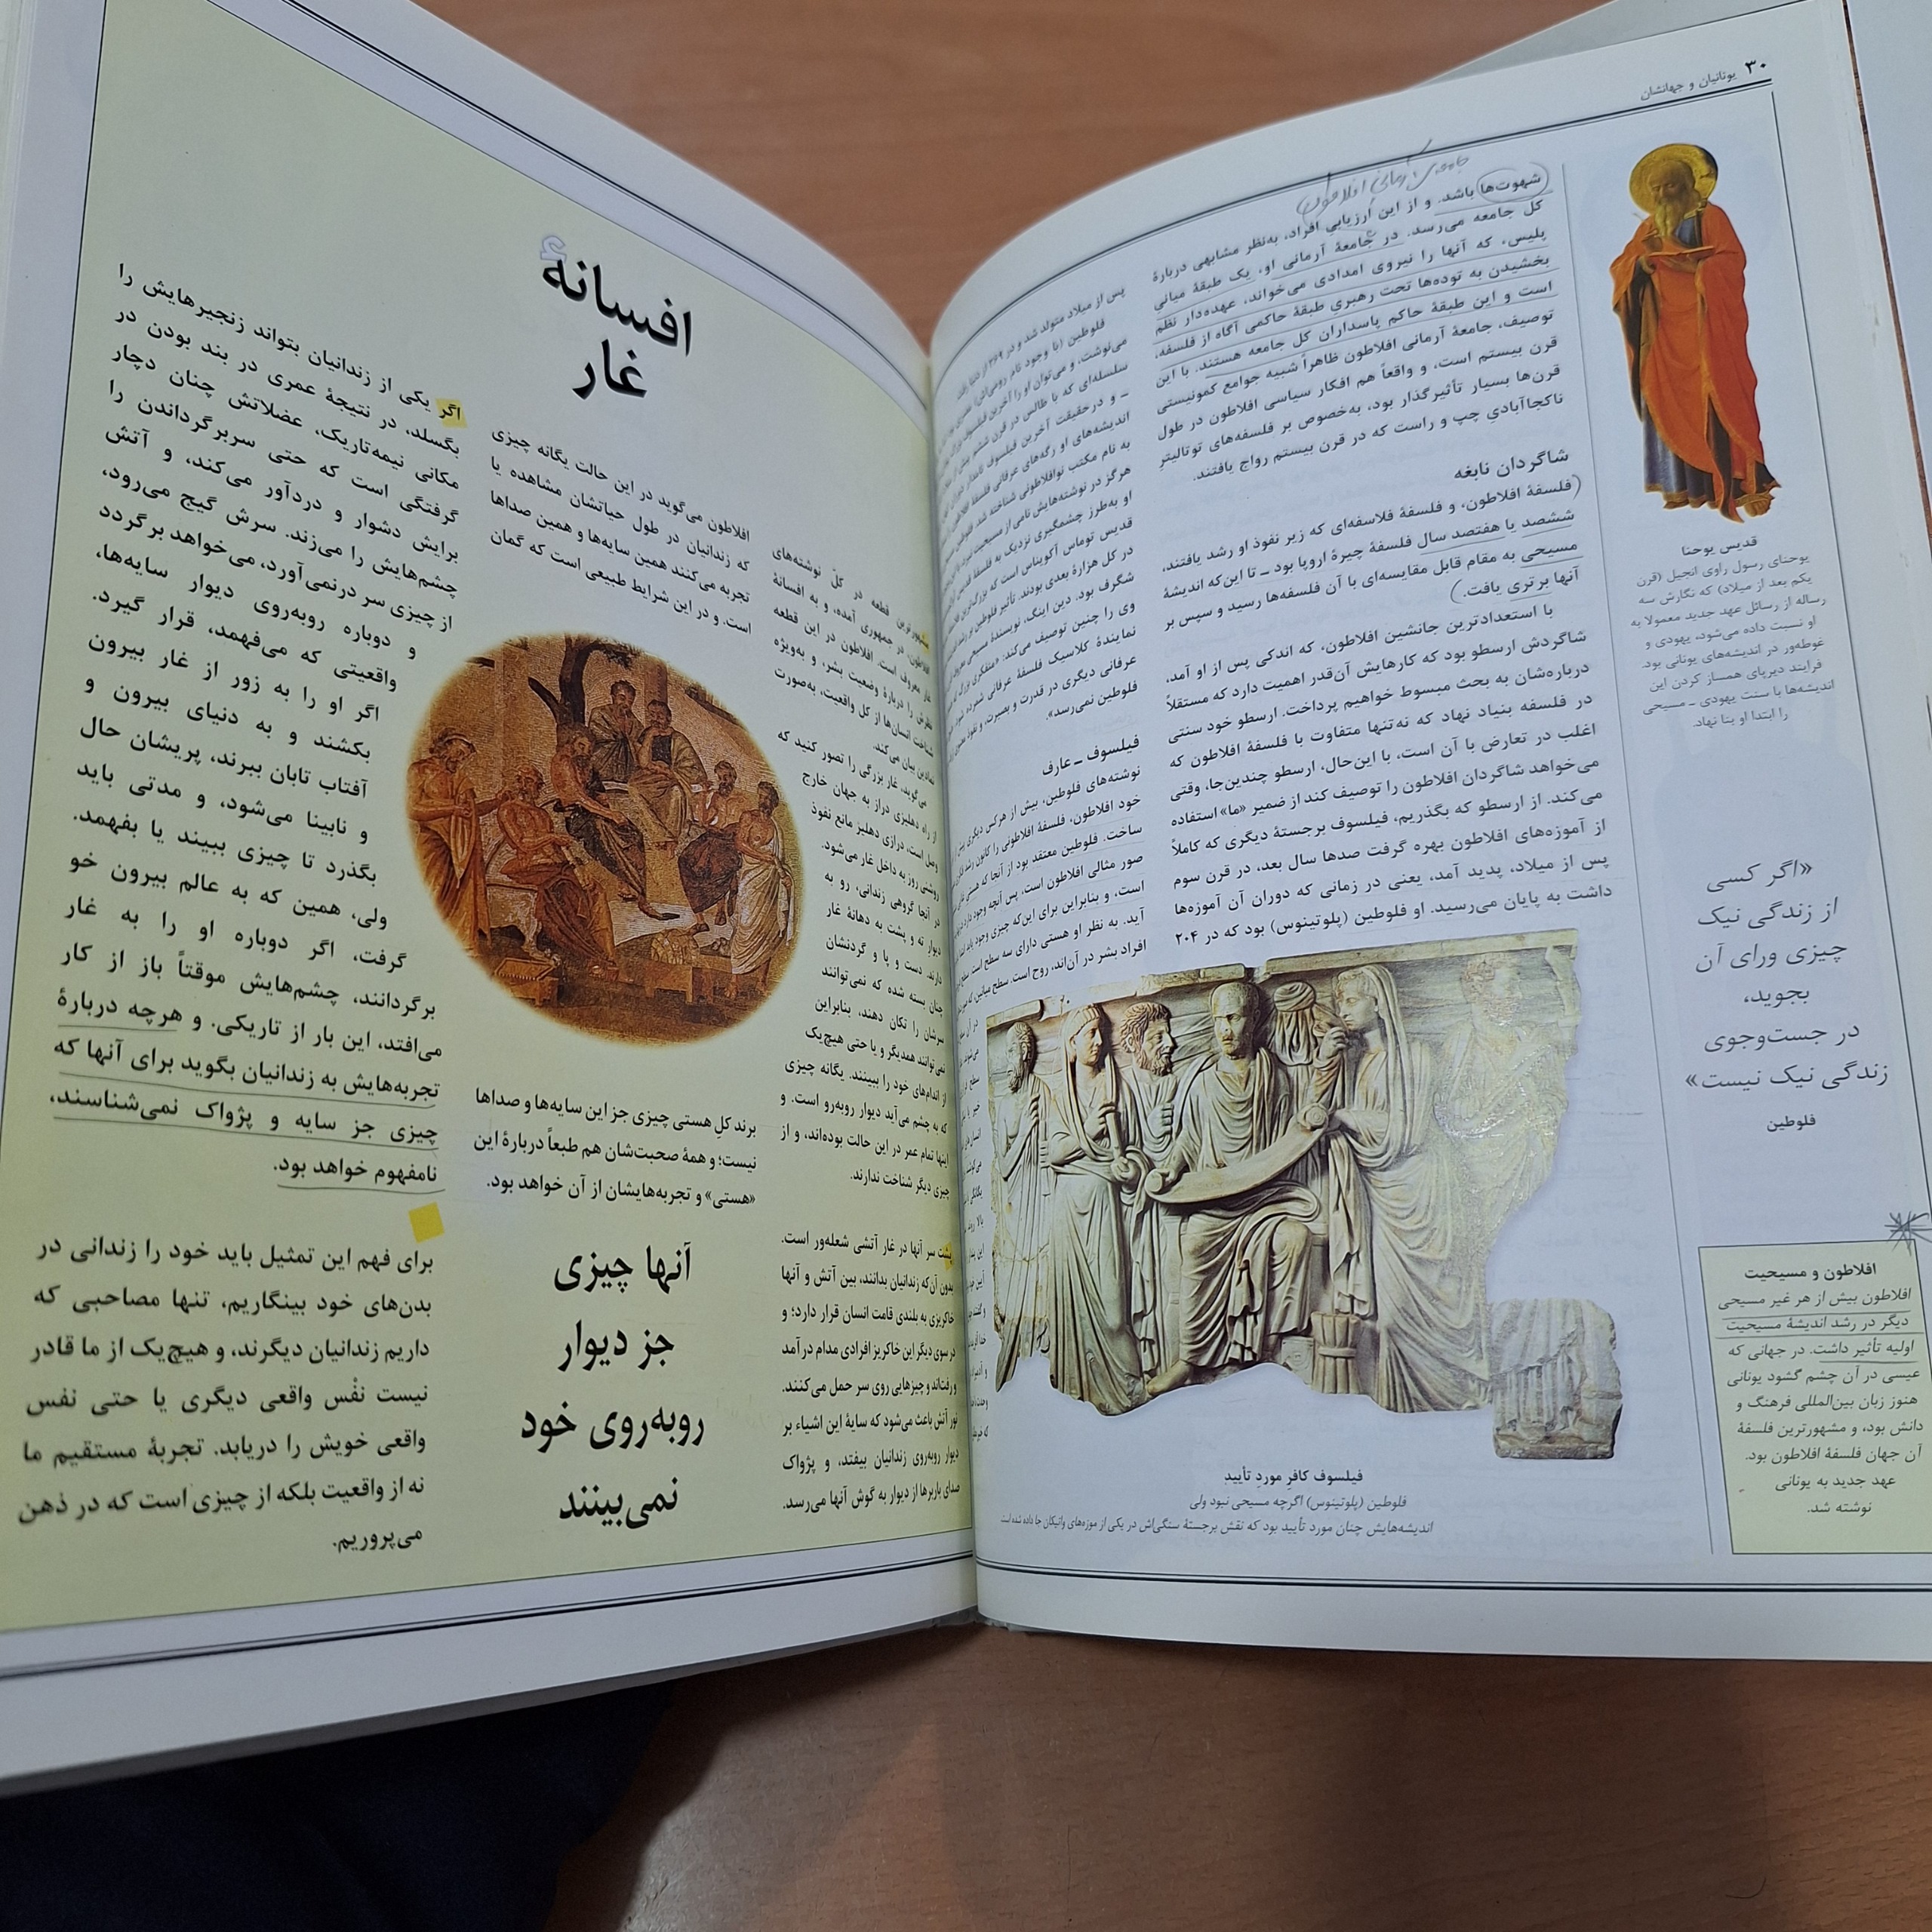 ۳۰ یونانیان و جهانشان
جامعه‌ی آرمانی افلاطون
شهوت‌ها باشد. و از این ارزیابی افراد، به‌نظر مشابهی دربارهٔ
کل جامعه می‌رسد. در جامعهٔ آرمانی او، یک طبقهٔ میانی
پلیس، که آنها را نیروی امدادی می‌خواند، عهده‌دار نظم
بخشیدن به توده‌ها تحت رهبری طبقهٔ حاکمی آگاه از فلسفه،
است و این طبقهٔ حاکم پاسداران کل جامعه هستند. با این
توصیف، جامعهٔ آرمانی افلاطون ظاهراً شبیه جوامع کمونیستی
قرن بیستم است، و واقعاً هم افکار سیاسی افلاطون در طول
قرن‌ها بسیار تأثیرگذار بود، به‌خصوص بر فلسفه‌های توتالیتر
ناکجاآبادی چپ و راست که در قرن بیستم رواج یافتند.
شاگردان نابغه
(فلسفهٔ افلاطون، و فلسفهٔ فلاسفه‌ای که زیر نفوذ او رشد یافتند،
ششصد یا هفتصد سال فلسفهٔ چیرهٔ اروپا بود ــ تا این‌که اندیشهٔ
مسیحی به مقام قابل مقایسه‌ای با آن فلسفه‌ها رسید و سپس بر
آنها برتری یافت.)
با استعدادترین جانشین افلاطون، که اندکی پس از او آمد،
شاگردش ارسطو بود که کارهایش آن‌قدر اهمیت دارد که مستقلاً
درباره‌شان به بحث مبسوط خواهیم پرداخت. ارسطو خود سنتی
در فلسفه بنیاد نهاد که نه‌تنها متفاوت با فلسفهٔ افلاطون که
اغلب در تعارض با آن است، با این‌حال، ارسطو چندین‌جا، وقتی
می‌خواهد شاگردان افلاطون را توصیف کند از ضمیر «ما» استفاده
می‌کند. از ارسطو که بگذریم، فیلسوف برجستهٔ دیگری که کاملاً
از آموزه‌های افلاطون بهره گرفت صدها سال بعد، در قرن سوم
پس از میلاد، پدید آمد، یعنی در زمانی که دوران آن آموزه‌ها
داشت به پایان می‌رسید. او فلوطین (پلوتینوس) بود که در ۲۰۴
پس از میلاد متولد شد و در ۲۶۹ از دنیا رفت.
فلوطین (با وجود نام رومی‌اش)
می‌نوشت، و می‌توان او را آخرین فیلسوف
سلسله‌ای که با طالس در قرن ششم پیش از
ــ و درحقیقت آخرین فیلسوف
اندیشه‌های او رگه‌های عرفانی فلسفهٔ افلاطون
به نام مکتب نوافلاطونی شناخته شد. فلوطین
هرگز در نوشته‌هایش نامی از مسیحیت نبرد،
او به‌طرز چشمگیری نزدیک به فلسفهٔ
قدیس توماس آکویناس است که بزرگ‌ترین
در کل هزارهٔ بعدی بودند. تأثیر فلوطین بر
شگرف بود. دین اینگ، نویسندهٔ مسیحی
وی را چنین توصیف می‌کند: «متفکری بزرگ که
نمایندهٔ کلاسیک فلسفهٔ عرفانی شمرده شود.
عرفانی دیگری در قدرت و بصیرت و نفوذ
فلوطین نمی‌رسد».
فیلسوف ــ عارف
نوشته‌های فلوطین، بیش از هرکس دیگری
خود افلاطون، فلسفهٔ افلاطونی را کانون رشد
ساخت. فلوطین معتقد بود از آنجا که هستی
صور مثالی افلاطون است، پس آنچه وجود دارد
است، و بنابراین برای این‌که چیزی وجود یابد
آید. به نظر او هستی دارای سه سطح است. سطح
افراد بشر در آن‌اند، روح است. سطح میانی، که
قدیس یوحنا
یوحنای رسول راوی انجیل (قرن
یکم بعد از میلاد) که نگارش سه
رساله از رسائل عهد جدید معمولا به
او نسبت داده می‌شود، یهودی و
غوطه‌ور در اندیشه‌های یونانی بود.
فرایند دیرپای همساز کردن این
اندیشه‌ها با سنت یهودی ــ مسیحی
را ابتدا او بنا نهاد.
«اگر کسی
از زندگی نیک
چیزی ورای آن
بجوید،
در جست‌وجوی
زندگی نیک نیست»
فلوطین
افلاطون و مسیحیت
افلاطون بیش از هر غیر مسیحی
دیگر در رشد اندیشهٔ مسیحیت
اولیه تأثیر داشت. در جهانی که
عیسی در آن چشم گشود یونانی
هنوز زبان بین‌المللی فرهنگ و
دانش بود، و مشهورترین فلسفهٔ
آن جهان فلسفهٔ افلاطون بود.
عهد جدید به یونانی
نوشته شد.
فیلسوف کافرِ موردِ تأیید
فلوطین (پلوتینوس) اگرچه مسیحی نبود ولی
اندیشه‌هایش چنان مورد تأیید بود که نقش برجستهٔ سنگی‌اش در یکی از موزه‌های واتیکان جا داده شده است
افسانهٔ
غار
مشهورترین قطعه در کل نوشته‌های
افلاطون، در جمهوری آمده، و به افسانهٔ
غار معروف است. افلاطون در این قطعه
نظرش را دربارهٔ وضعیت بشر، و به‌ویژه
شناخت انسان‌ها از کل واقعیت، به‌صورت
نمادین بیان می‌کند.
می‌گوید، غار بزرگی را تصور کنید که
از راه دهلیزی دراز به جهان خارج
وصل است، درازی دهلیز مانع نفوذ
روشنی روز به داخل غار می‌شود.
در آنجا گروهی زندانی، رو به
دیوارِ ته و پشت به دهانهٔ غار
دارند. دست و پا و گردنشان
چنان بسته شده که نمی‌توانند
سرشان را تکان دهند، بنابراین
نمی‌توانند همدیگر و یا حتی هیچ‌یک
از اندام‌های خود را ببینند. یگانه چیزی
که به چشم می‌آید دیوار روبه‌رو است. و
اینها تمام عمر در این حالت بوده‌اند، و از
چیزی دیگر شناخت ندارند.
پشت سر آنها در غار آتشی شعله‌ور است.
بدون آن‌که زندانیان بدانند، بین آتش و آنها
خاکریزی به بلندی قامت انسان قرار دارد؛ و
در سوی دیگر این خاکریز افرادی مدام در آمد
و رفت‌اند و چیزهایی روی سر حمل می‌کنند.
نور آتش باعث می‌شود که سایهٔ این اشیاء بر
دیوار روبه‌روی زندانیان بیفتد، و پژواک
صدای باربرها از دیوار به گوش آنها می‌رسد.
افلاطون می‌گوید در این حالت یگانه چیزی
که زندانیان در طول حیاتشان مشاهده یا
تجربه می‌کنند همین سایه‌ها و همین صداها
است. و در این شرایط طبیعی است که گمان
برند کلِ هستی چیزی جز این سایه‌ها و صداها
نیست؛ و همهٔ صحبت‌شان هم طبعاً دربارهٔ این
«هستی» و تجربه‌هایشان از آن خواهد بود.
آنها چیزی
جز دیوار
روبه‌روی خود
نمی‌بینند
اگر یکی از زندانیان بتواند زنجیرهایش را
بگسلد، در نتیجهٔ عمری در بند بودن در
مکانی نیمه‌تاریک، عضلاتش چنان دچار
گرفتگی است که حتی سربرگرداندن را
برایش دشوار و دردآور می‌کند، و آتش
چشم‌هایش را می‌زند. سرش گیج می‌رود،
از چیزی سر درنمی‌آورد، می‌خواهد برگردد
و دوباره روبه‌روی دیوار سایه‌ها،
واقعیتی که می‌فهمد، قرار گیرد.
اگر او را به زور از غار بیرون
بکشند و به دنیای بیرون و
آفتاب تابان ببرند، پریشان حال
و نابینا می‌شود، و مدتی باید
بگذرد تا چیزی ببیند یا بفهمد.
ولی، همین که به عالم بیرون خو
گرفت، اگر دوباره او را به غار
برگردانند، چشم‌هایش موقتاً باز از کار
می‌افتد، این بار از تاریکی. و هرچه دربارهٔ
تجربه‌هایش به زندانیان بگوید برای آنها که
چیزی جز سایه و پژواک نمی‌شناسند،
نامفهوم خواهد بود.
برای فهم این تمثیل باید خود را زندانی در
بدن‌های خود بینگاریم، تنها مصاحبی که
داریم زندانیان دیگرند، و هیچ‌یک از ما قادر
نیست نفْس واقعی دیگری یا حتی نفس
واقعی خویش را دریابد. تجربهٔ مستقیم ما
نه از واقعیت بلکه از چیزی است که در ذهن
می‌پروریم.